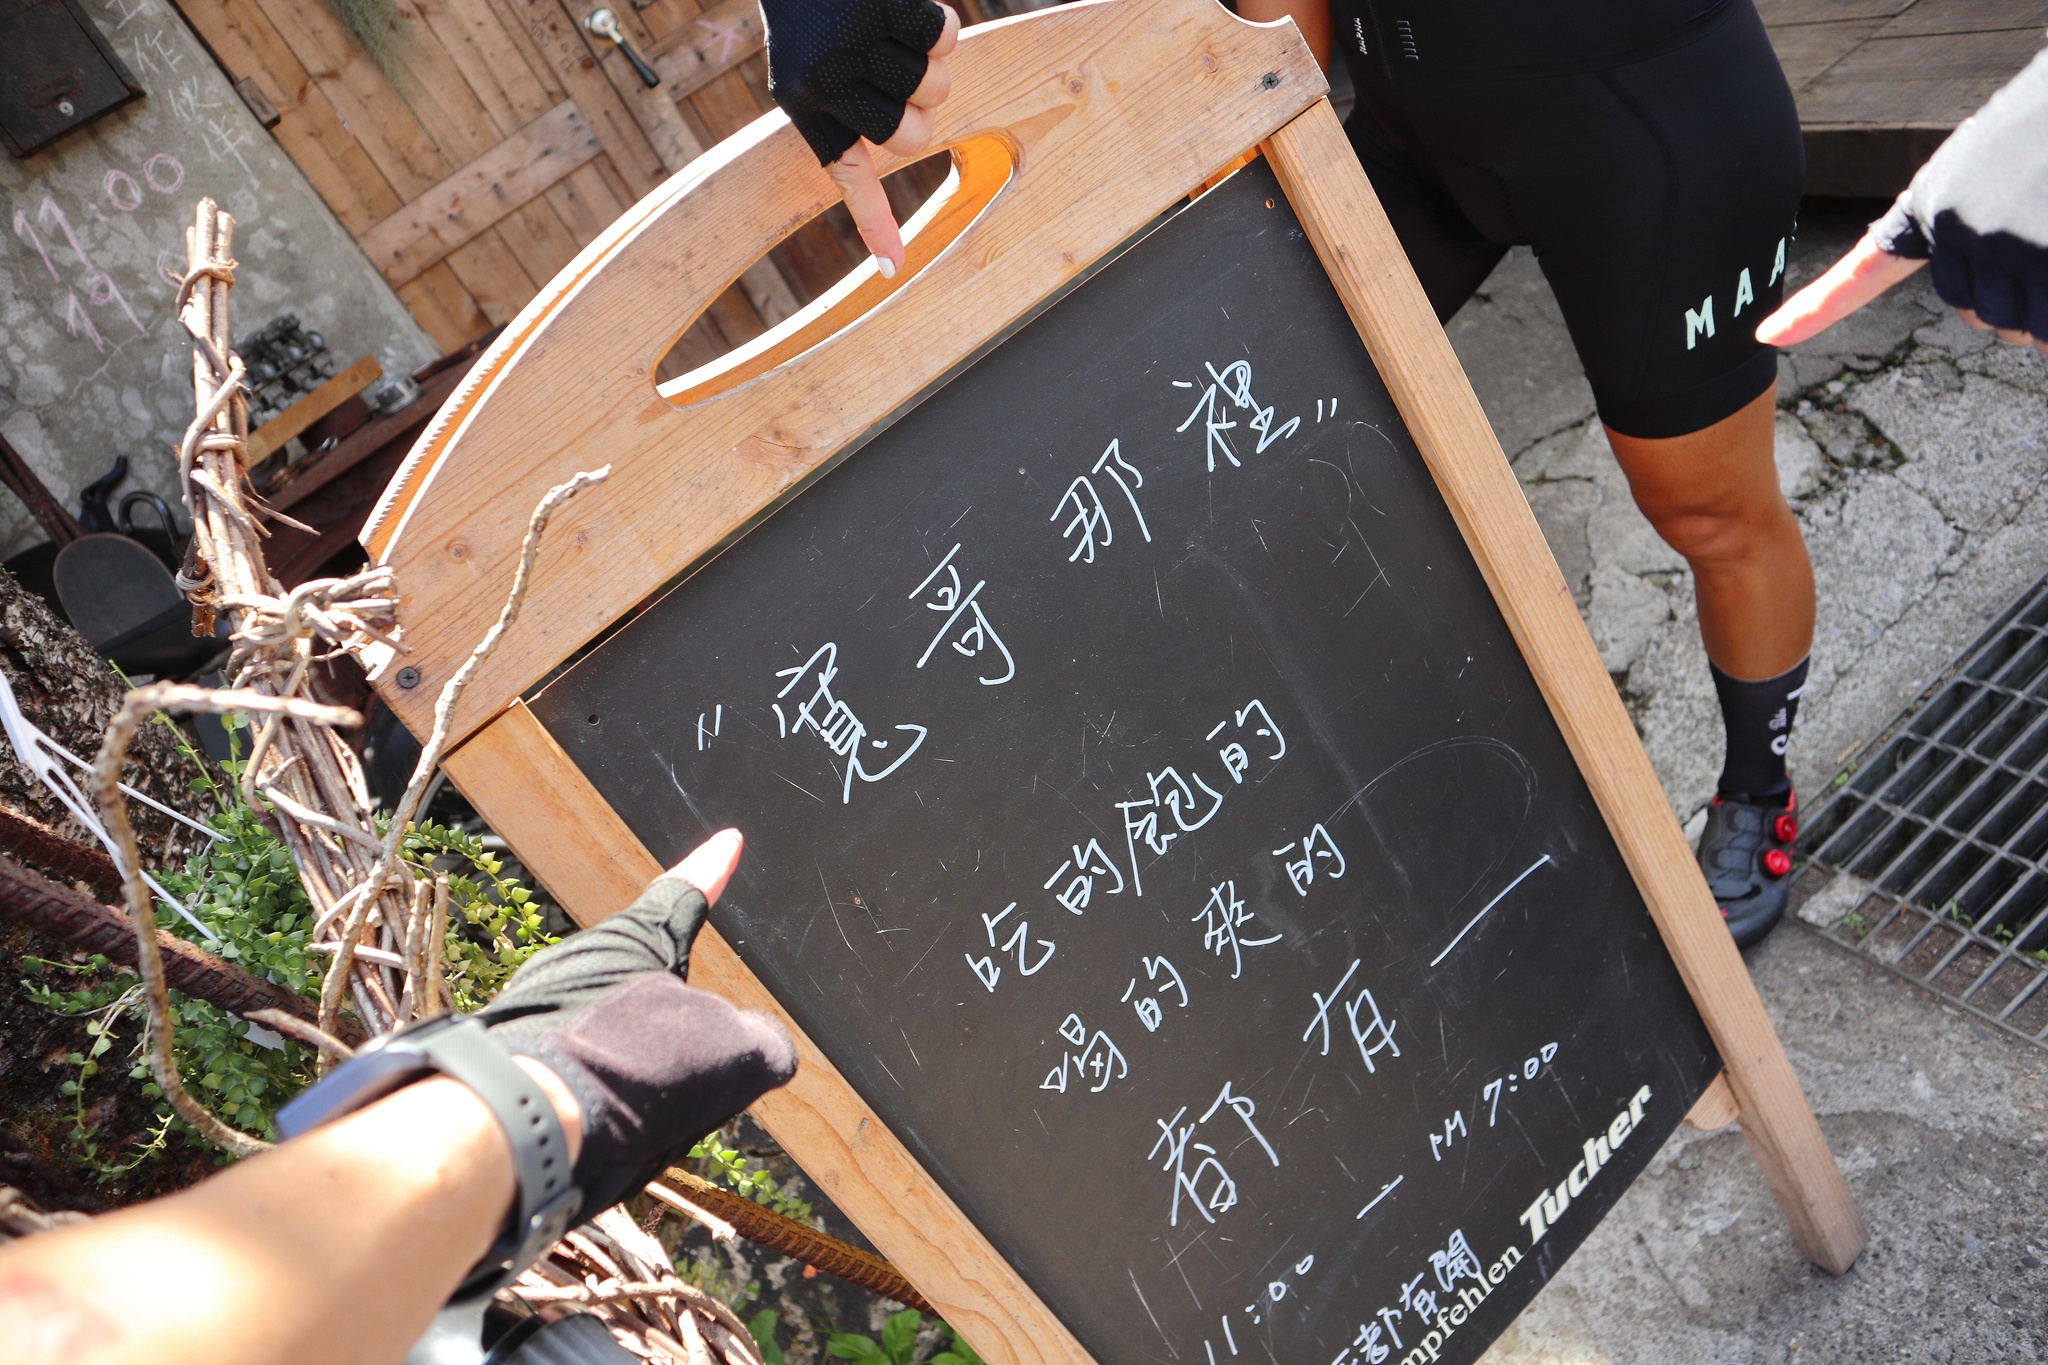 工作伙伴
11:00
19
"寬哥那裡"
吃的飽的
喝的爽的
都有一
11:00 — PM 7:00
都有開
mpfehlen Tucher
MAA